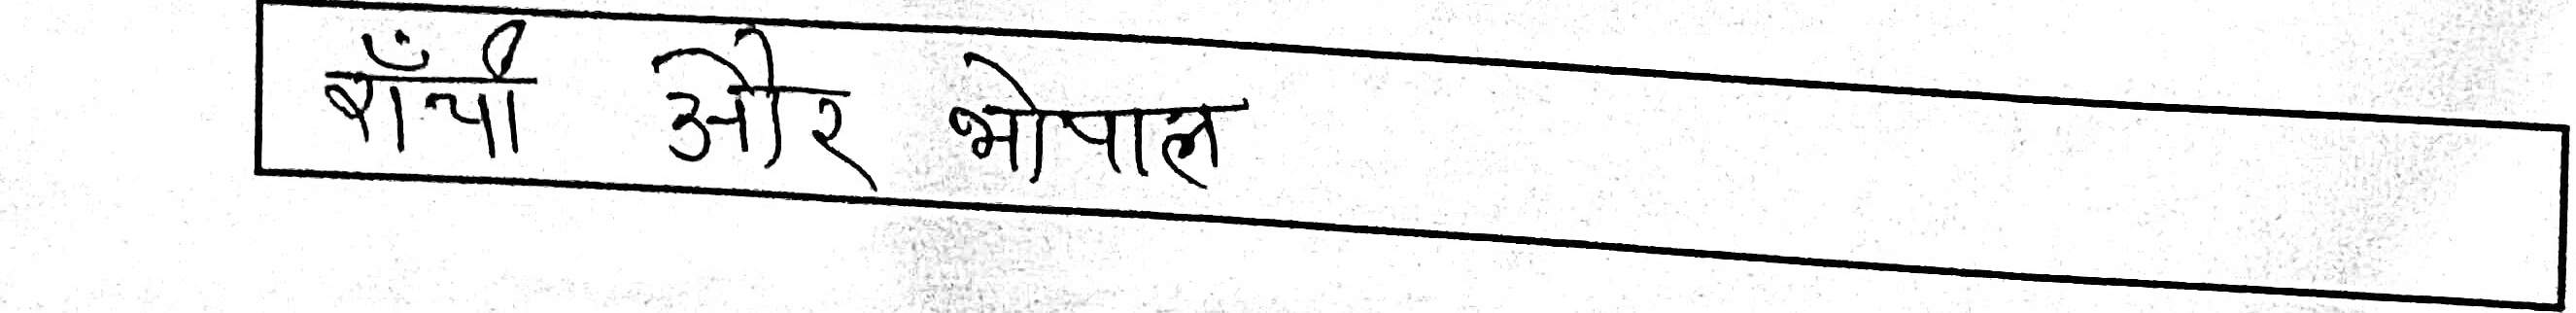 राँची और भोपाल